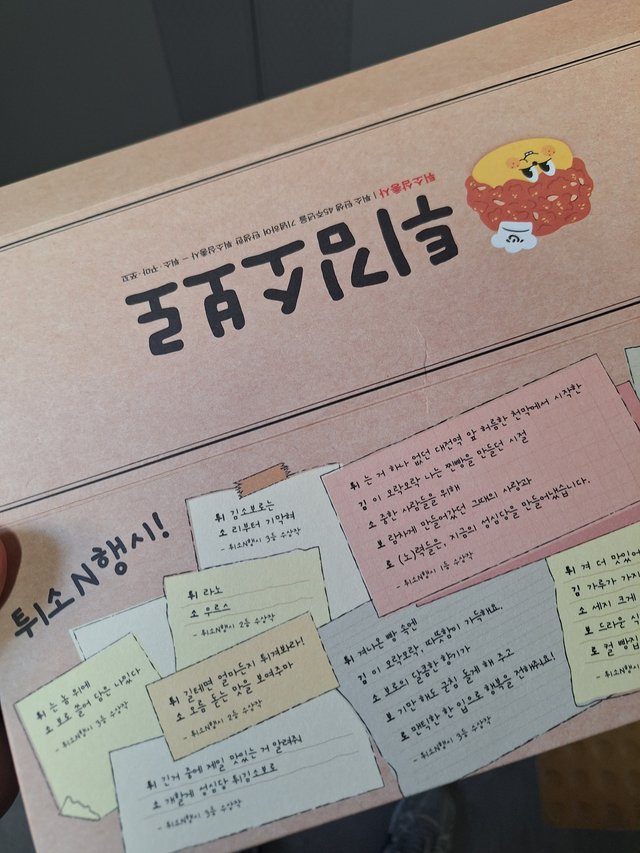 튀김소보로
튀소삼총사 | 튀소 탄생 45주년을 기념하여 탄생한 튀소삼총사 - 튀소 · 구마 · 쪼꼬
튀소N행시!
튀 김소보로는
소 리부터 기막혀
- 튀소N행시 3등 수상작
튀 는 거 하나 없던 대전역 앞 허름한 천막에서 시작한
김 이 모락모락 나는 찐빵을 만들던 시절
소 중한 사람들을 위해
보 람차게 만들어갔던 그때의 사랑과
로 (노)력들은, 지금의 성심당을 만들어냈습니다.
- 튀소N행시 1등 수상작
튀 라노
소 우르스
- 튀소N행시 2등 수상작
튀 는 놈 위에
소 보로 쫄여 담은 나있다
- 튀소N행시 3등 수상작
튀 길테면 얼마든지 튀겨봐라!
소 오름 돋는 맛을 보여주마
- 튀소N행시 2등 수상작
튀 겨나온 빵 속에
김 이 모락모락, 따뜻함이 가득해요.
소 보로의 달콤한 향기가
보 기만 해도 군침 돌게 해 주고
로 맨틱한 한 입으로 행복을 전해줘요!
- 튀소N행시 3등 수상작
튀 겨 더 맛있
김 가루가 가지
소 세지 크게
보 드라운 식
로 컬 빵집
- 튀소N행시
튀 긴거 중에 제일 맛있는 거 알려줘
소 개할게 성심당 튀김소보로
- 튀소N행시 3등 수상작